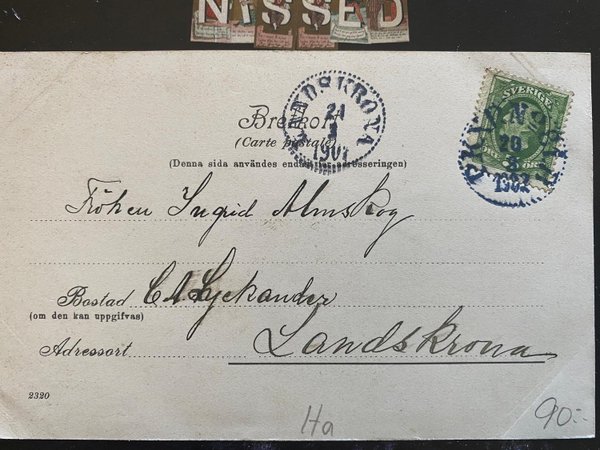 NISSED
LANDSKRONA
21
3
1907
SVERIGE
20
3
Brefkort
(Carte postale)
(Denna sida användes endast för adresseringen)
Fröken Ingrid Almskog
Bostad C A Lyckander
(om den kan uppgifvas)
Adressort Landskrona
2320
Ha
90:-